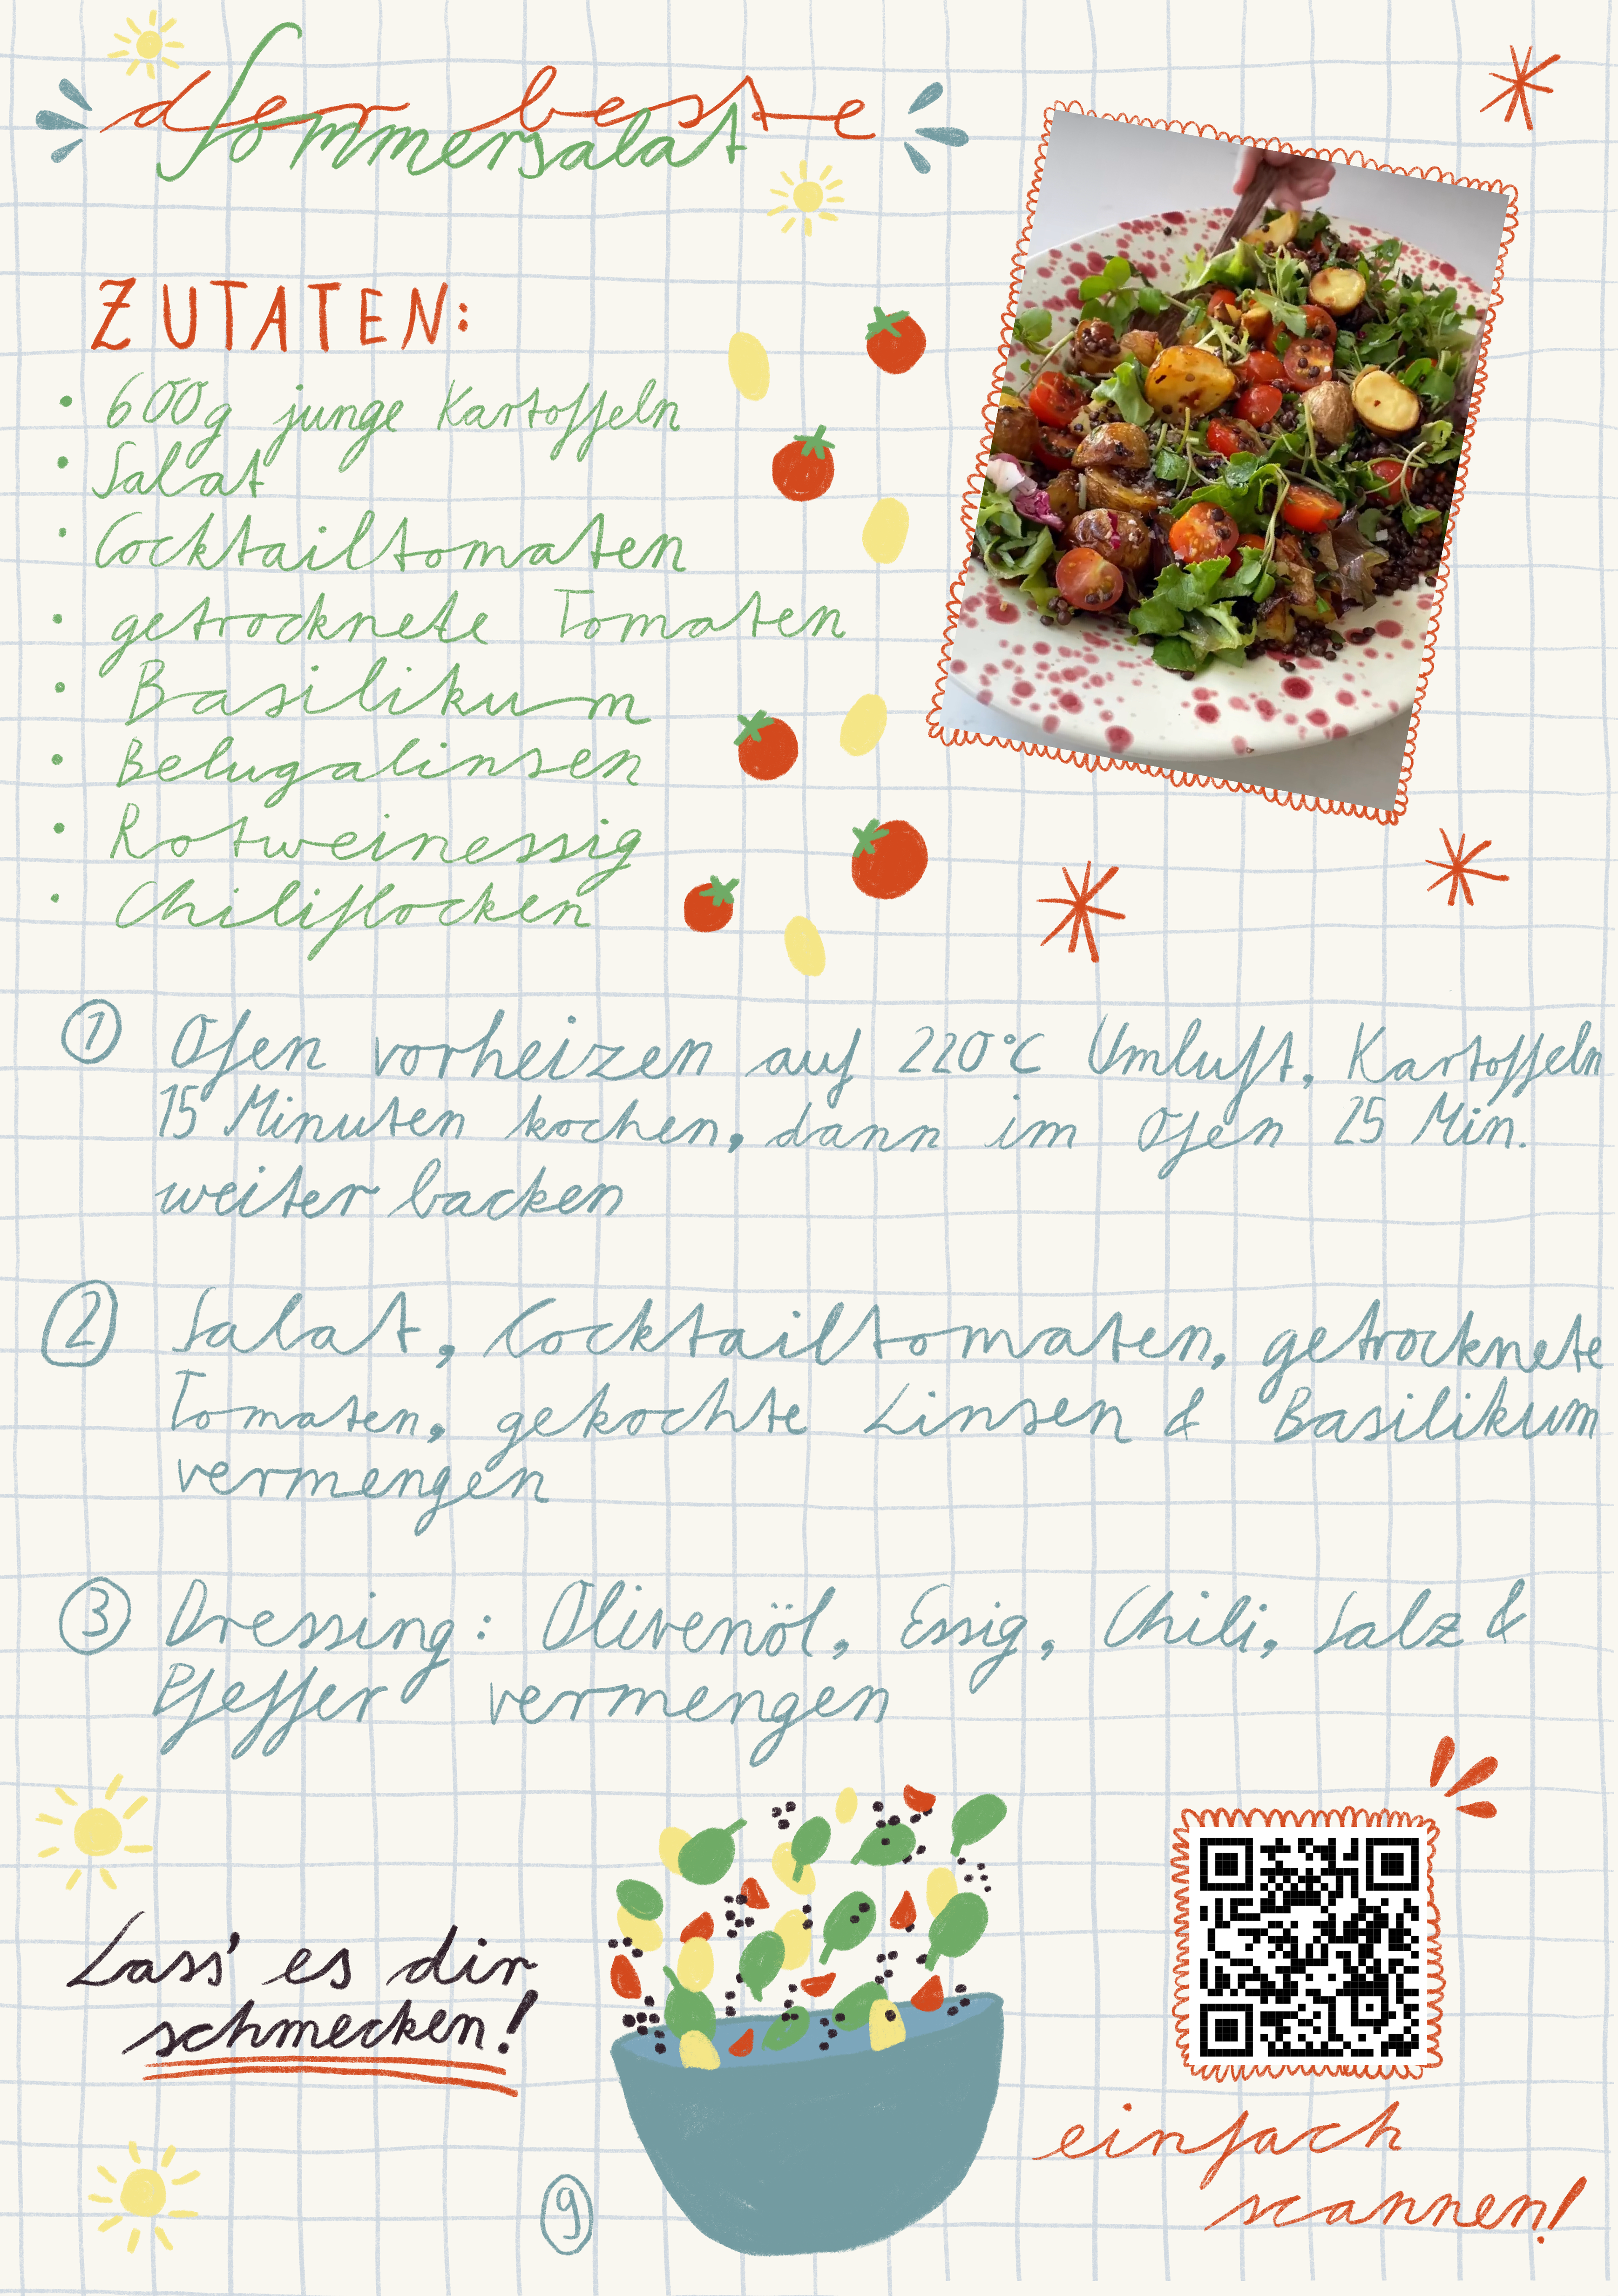 der beste
Sommersalat
ZUTATEN:
• 600g junge Kartoffeln
• Salat
• Cocktailtomaten
• getrocknete Tomaten
• Basilikum
• Belugalinsen
• Rotweinessig
• Chiliflocken
1 Ofen vorheizen auf 220°C Umluft, Kartoffeln
15 Minuten kochen, dann im Ofen 25 Min.
weiter backen
2 Salat, Cocktailtomaten, getrocknete
Tomaten, gekochte Linsen & Basilikum
vermengen
3 Dressing: Olivenöl, Essig, Chili, Salz &
Pfeffer vermengen
Lass' es dir
schmecken!
einfach
scannen!
9